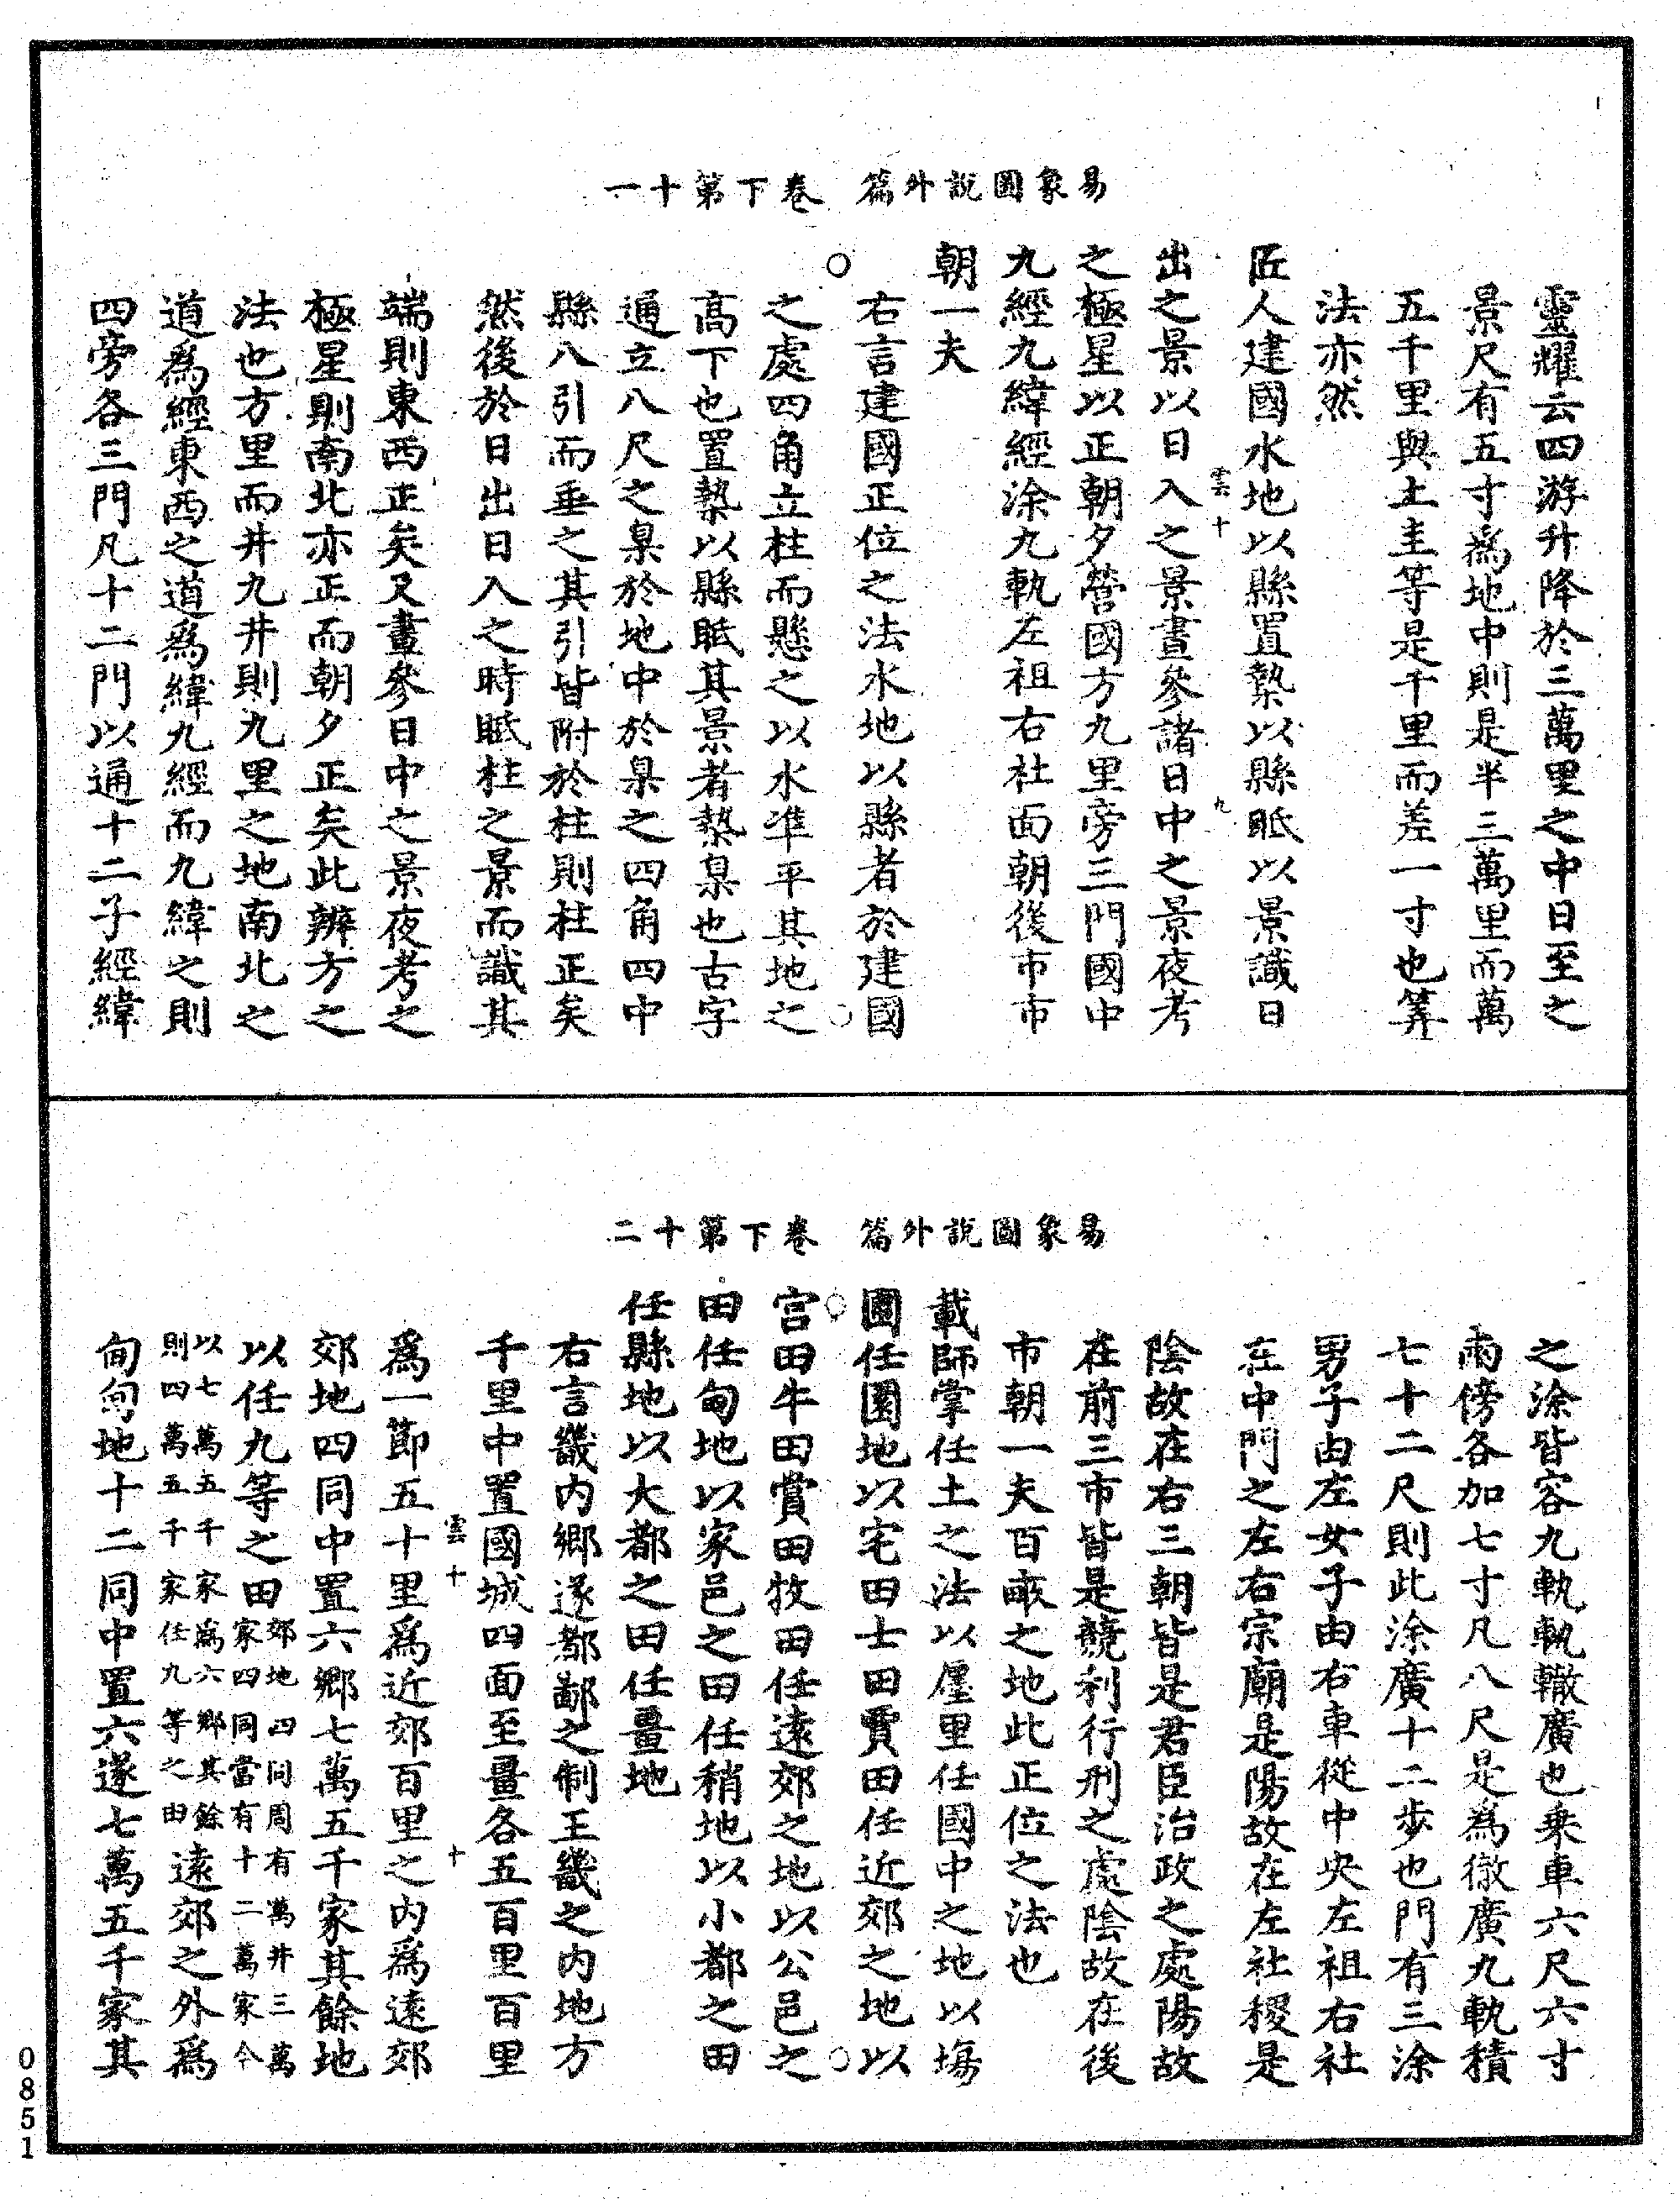 易象圖說外篇 卷下第十一
靈耀云四游升降於三萬里之中日至之
景尺有五寸爲地中則是半三萬里而萬
五千里與土圭等是千里而差一寸也筭
法亦然
匠人建國水地以縣置槷以縣眡以景識日
雲十 九
出之景以日入之景晝參諸日中之景夜考
之極星以正朝夕營國方九里旁三門國中
九經九緯經涂九軌左祖右社面朝後市市
朝一夫
右言建國正位之法水地以縣者於建國
○
之處四角立柱而懸之以水準平其地之
高下也置槷以縣眡其景者槷臬也古字
通立八尺之臬於地中於臬之四角四中
縣八引而垂之其引皆附於柱則柱正矣
然後於日出日入之時眡柱之景而識其
端則東西正矣又晝參日中之景夜考之
極星則南北亦正而朝夕正矣此辨方之
法也方里而井九井則九里之地南北之
道爲經東西之道爲緯九經而九緯之則
四旁各三門凡十二門以通十二子經緯
易象圖說外篇 卷下第十二
之涂皆容九軌軌轍廣也乘車六尺六寸
兩傍各加七寸凡八尺是爲徹廣九軌積
七十二尺則此涂廣十二步也門有三涂
男子由左女子由右車從中央左祖右社
在中門之左右宗廟是陽故在左社稷是
陰故在右三朝皆是君臣治政之處陽故
在前三市皆是競利行刑之處陰故在後
市朝一夫百畝之地此正位之法也
載師掌任土之法以廛里任國中之地以場
圃任園地以宅田士田賈田任近郊之地以
宫田牛田賞田牧田任遠郊之地以公邑之
田任甸地以家邑之田任稍地以小都之田
任縣地以大都之田任畺地
右言畿内鄉遂都鄙之制王畿之内地方
千里中置國城四面至畺各五百里百里
雲十 十
爲一節五十里爲近郊百里之内爲遠郊
郊地四同中置六鄉七萬五千家其餘地
以任九等之田郊地四同周有萬井三萬家四同當有十二萬家今
以七萬五千家爲六鄉其餘則四萬五千家任九等之由遠郊之外爲
甸甸地十二同中置六遂七萬五千家其
0851